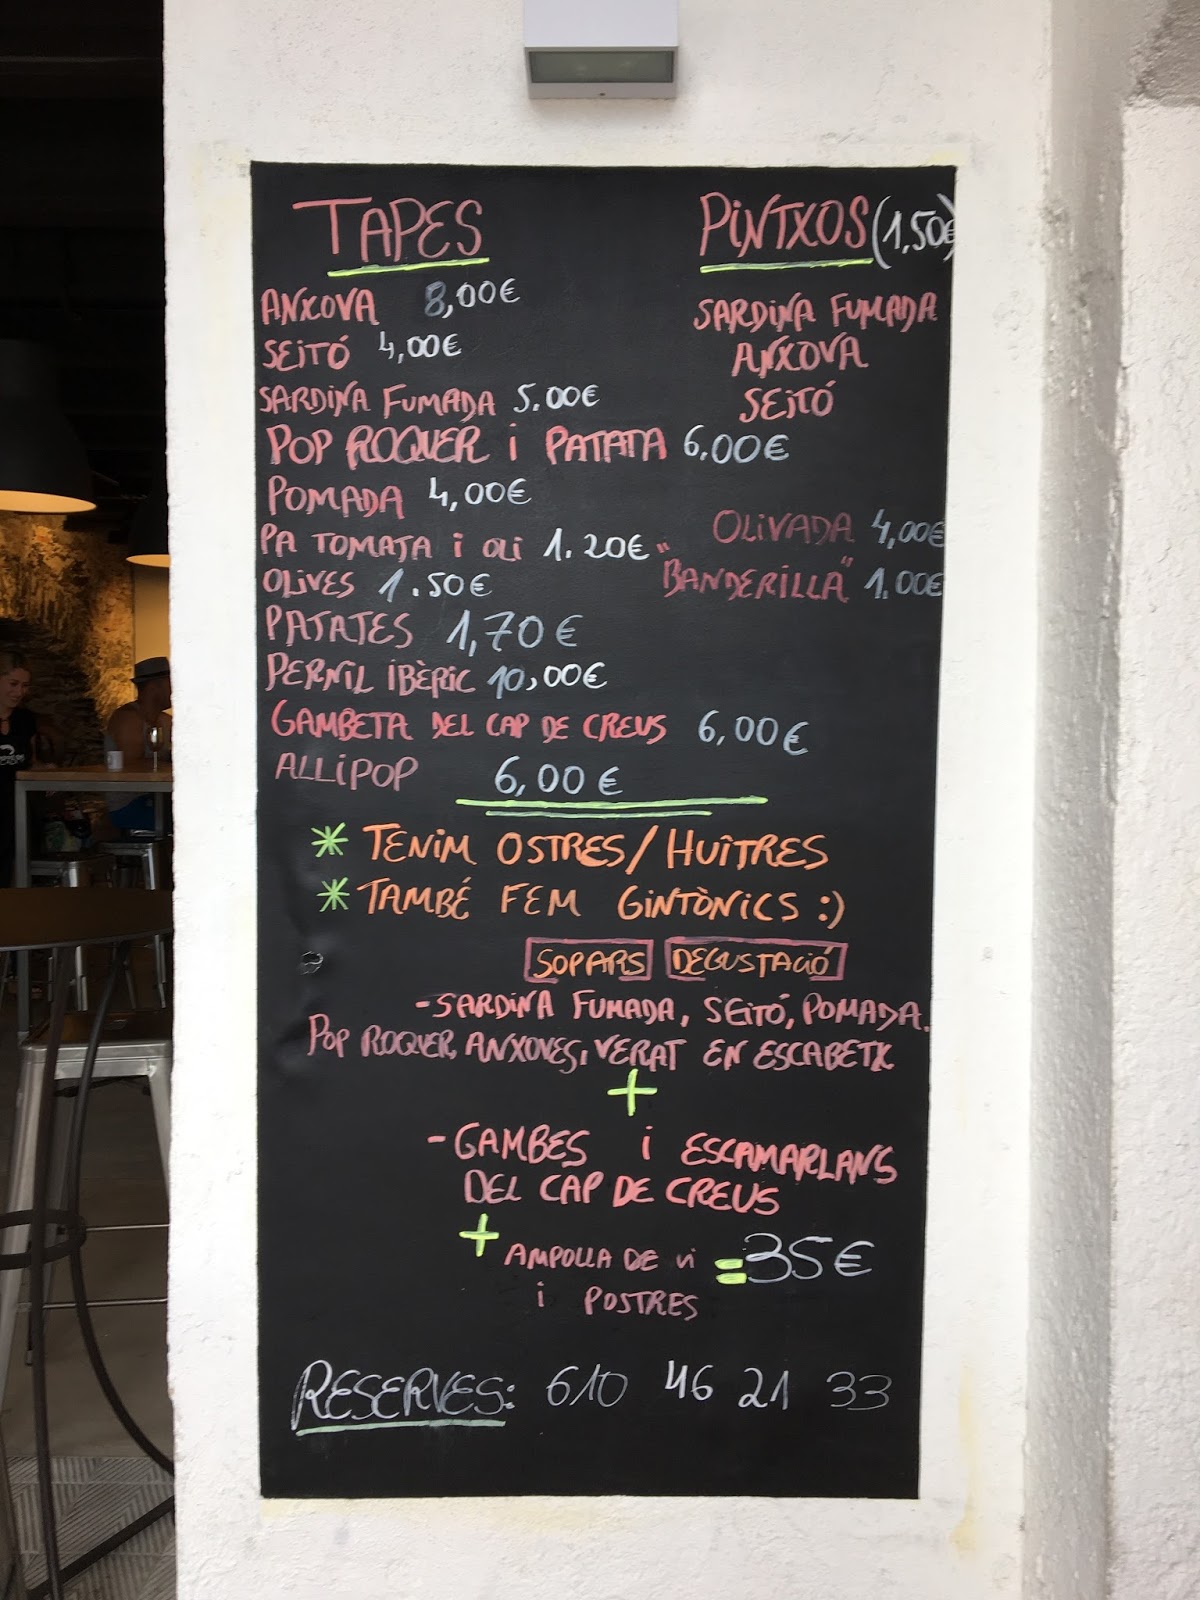 TAPES
ANXOVA 8,00€
SEITÓ 4,00€
SARDINA FUMADA 5.00€
POP ROQUER i PATATA 6,00€
POMADA 4,00€
PA TOMATA i OLI 1.20€
OLIVES 1.50€
PATATES 1,70€
PERNIL IBÈRIC 10,00€
GAMBETA DEL CAP DE CREUS 6,00€
ALLIPOP 6,00€
PINTXOS (1,50€)
SARDINA FUMADA
ANXOVA
SEITÓ
OLIVADA 4,00€
"BANDERILLA" 1.00€
* TENIM OSTRES/HUÎTRES
* TAMBÉ FEM GINTÒNICS :)
SOPARS DEGUSTACIÓ
-SARDINA FUMADA, SEITÓ, POMADA.
POP ROQUER, ANXOVES, VERAT EN ESCABETX
+
-GAMBES i ESCAMARLANS
DEL CAP DE CREUS
+ AMPOLLA DE VI = 35€
i POSTRES
RESERVES: 610 46 21 33